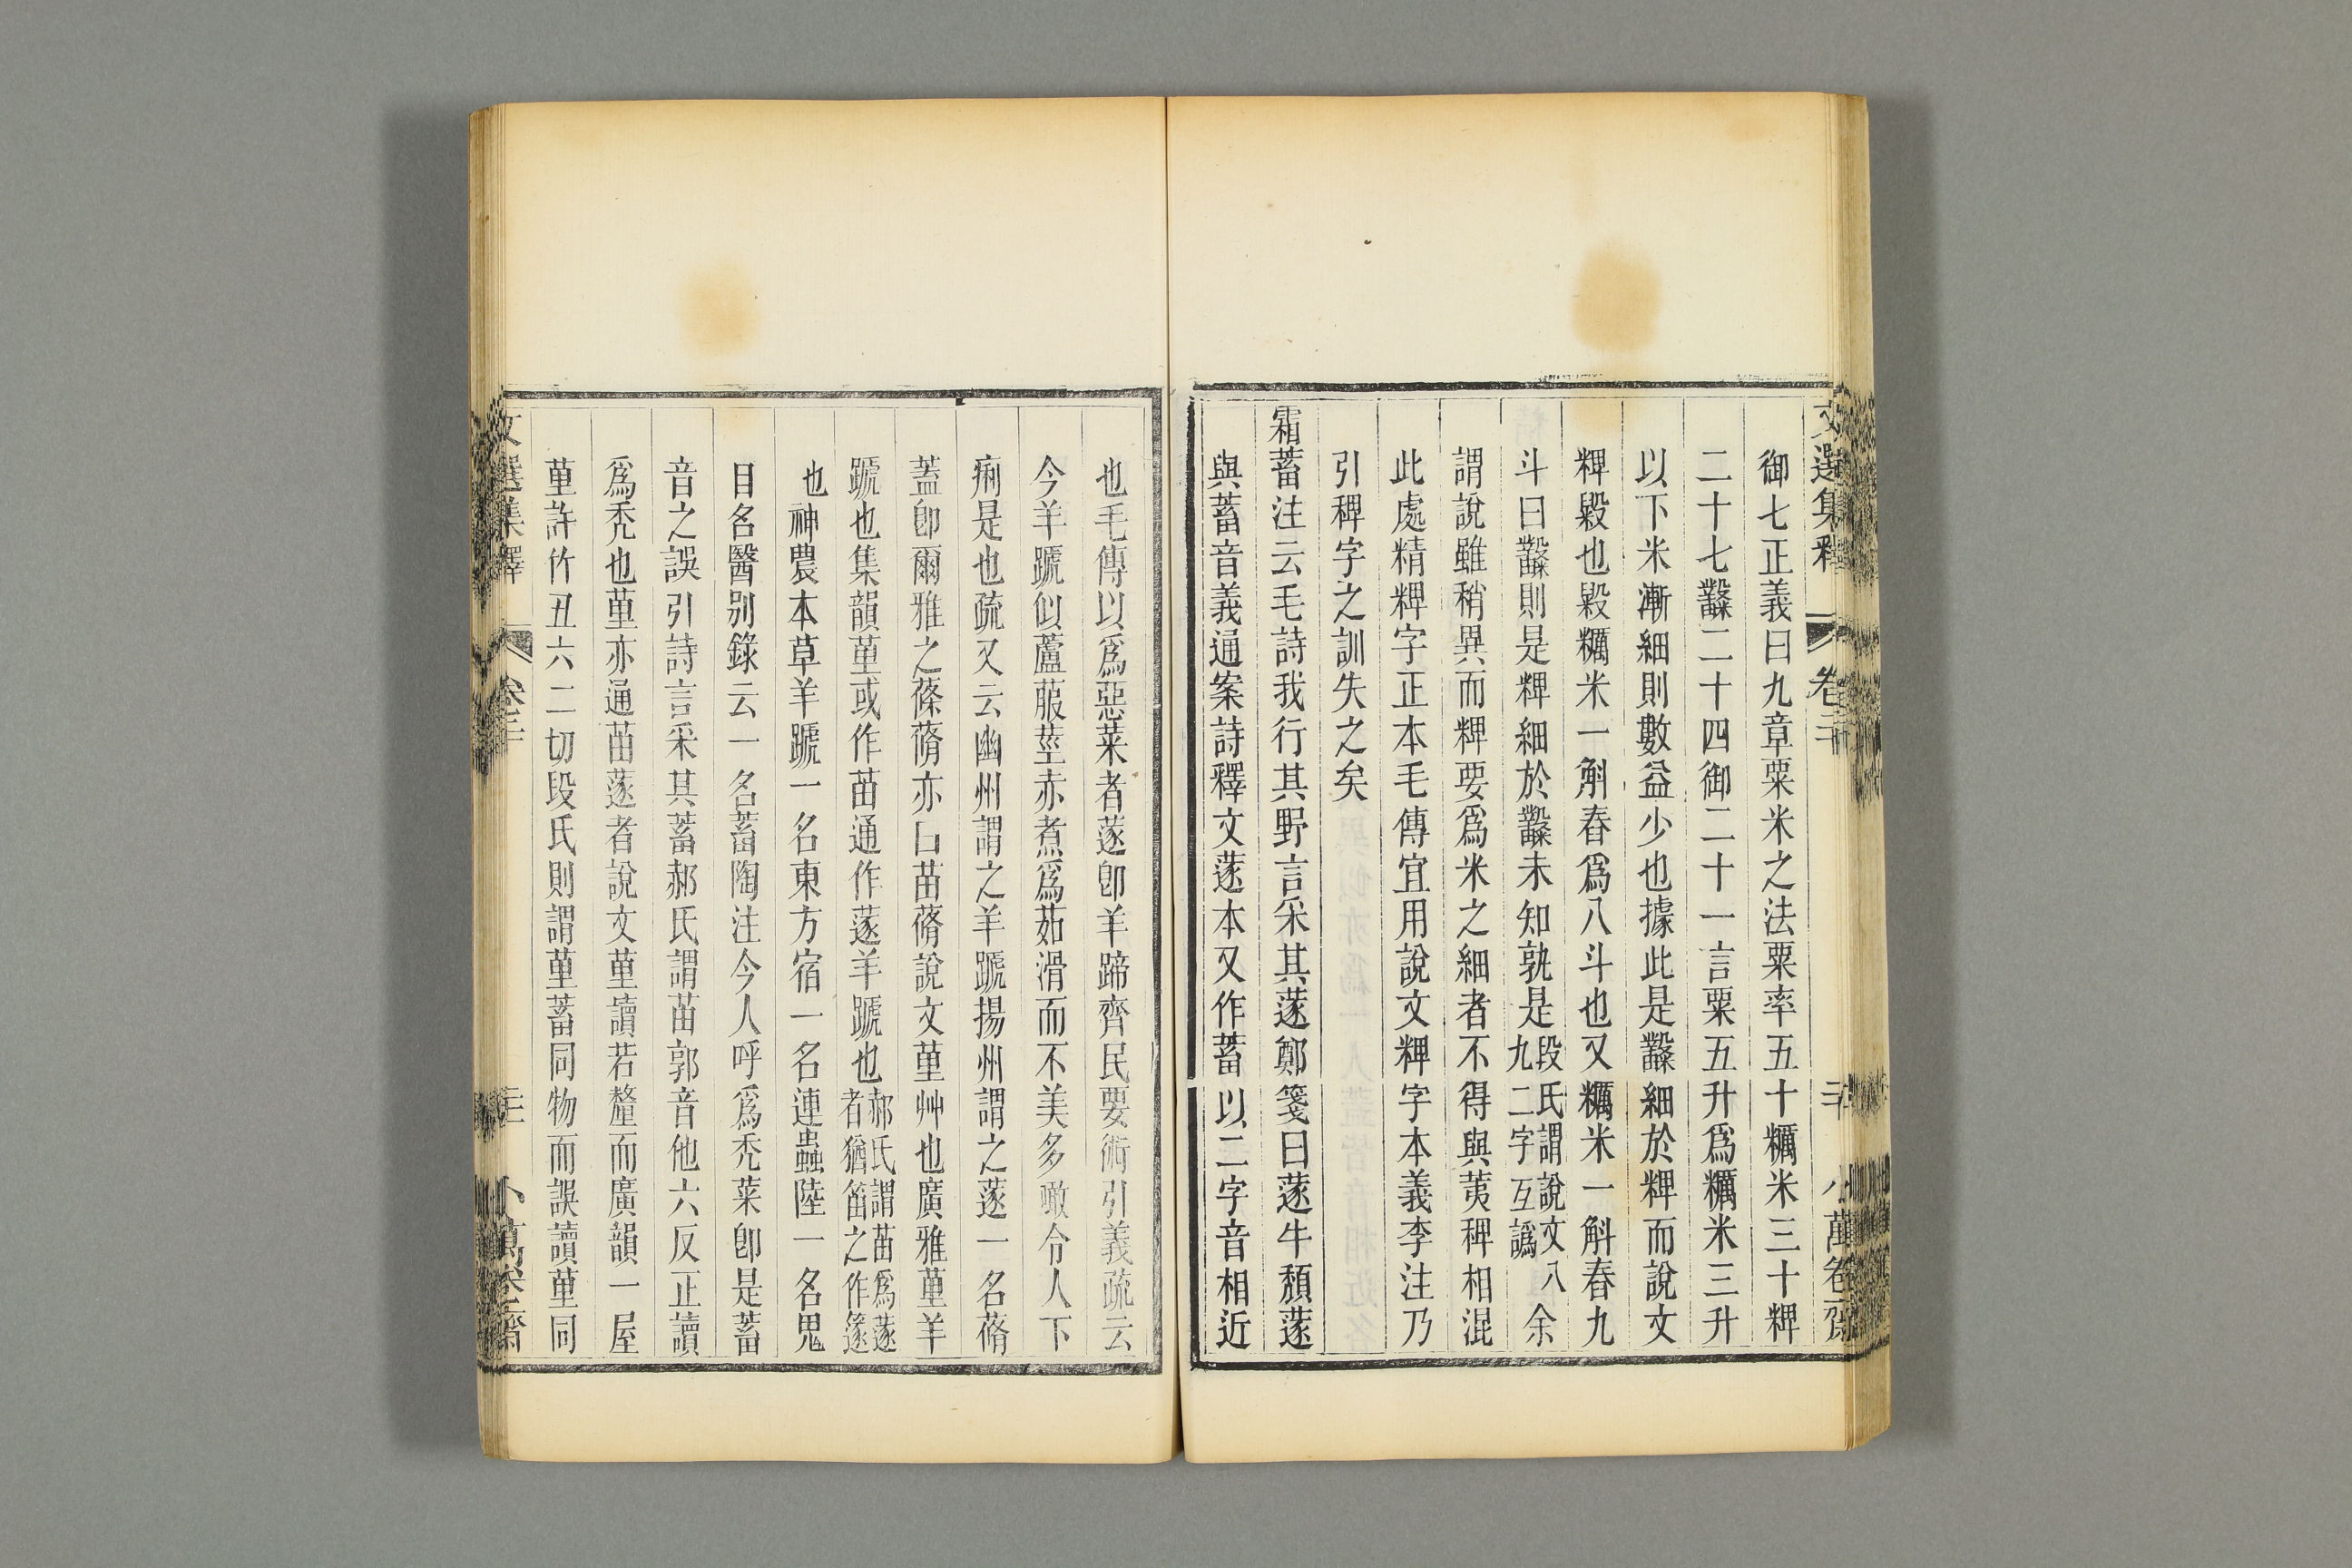 文選集釋 卷二十 二十 小萬卷齋
御七正義曰九章粟米之法粟率五十糲米三十粺
二十七糳二十四御二十一言粟五升爲糲米三升
以下米漸細則數益少也據此是糳細於粺而說文
粺毇也毇糲米一斛舂爲八斗也又糲米一斛舂九
斗曰糳則是粺細於糳未知孰是段氏謂說文八九二字互譌余
謂說雖稍異而粺要爲米之細者不得與荑稗相混
此處精粺字正本毛傳宜用說文粺字本義李注乃
引稗字之訓失之矣
霜蓄注云毛詩我行其野言采其蓫鄭箋曰蓫牛蘈蓫
與蓄音義通案詩釋文蓫本又作蓄以二字音相近
也毛傳以爲惡菜者蓫卽羊蹄齊民要術引義疏云
今羊蹏似蘆菔莖赤煮爲茹滑而不美多噉令人下
痢是也疏又云幽州謂之羊蹏揚州謂之蓫一名蓨
蓋卽爾雅之蓧蓨亦曰苗蓨說文堇艸也廣雅堇羊
蹏也集韻堇或作苗通作蓫羊蹏也郝氏謂苗爲蓫者猶笛之作篴
也神農本草羊蹏一名東方宿一名連蟲陸一名鬼
目名醫別錄云一名蓄陶注今人呼爲禿菜卽是蓄
音之誤引詩言采其蓄郝氏謂苗郭音他六反正讀
爲禿也堇亦通苗蓫者說文堇讀若釐而廣韻一屋
堇許竹丑六二切段氏則謂堇蓄同物而誤讀堇同
文選集釋 卷二十 二十一 小萬卷齋